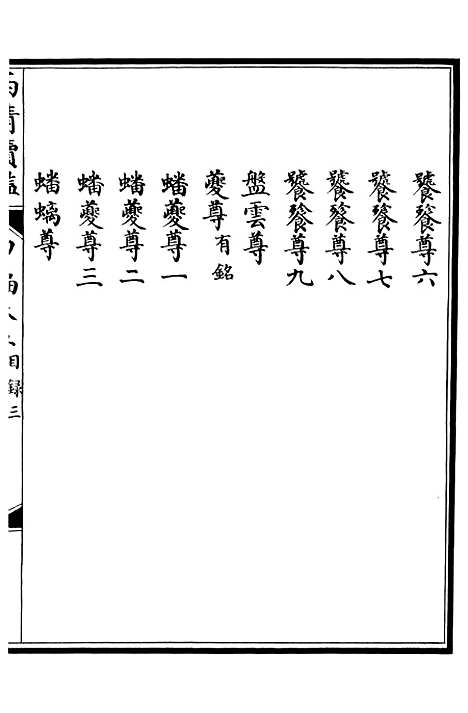 饕餮尊六
饕餮尊七
饕餮尊八
饕餮尊九
盤雲尊
夔尊有銘
蟠夔尊一
蟠夔尊二
蟠夔尊三
蟠螭尊
目錄 三